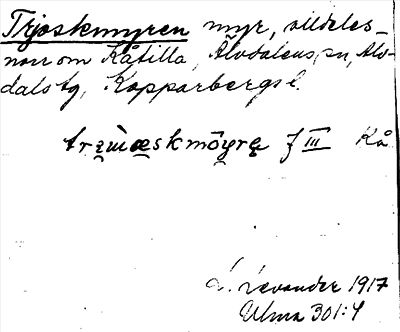 Trjoskmyren myr, alldeles
norr om Kåtilla, Älvdalens sn, Älv-
dals tg, Kopparbergs l.
f III Kå
L. Levander 1917
Ulma 301:4